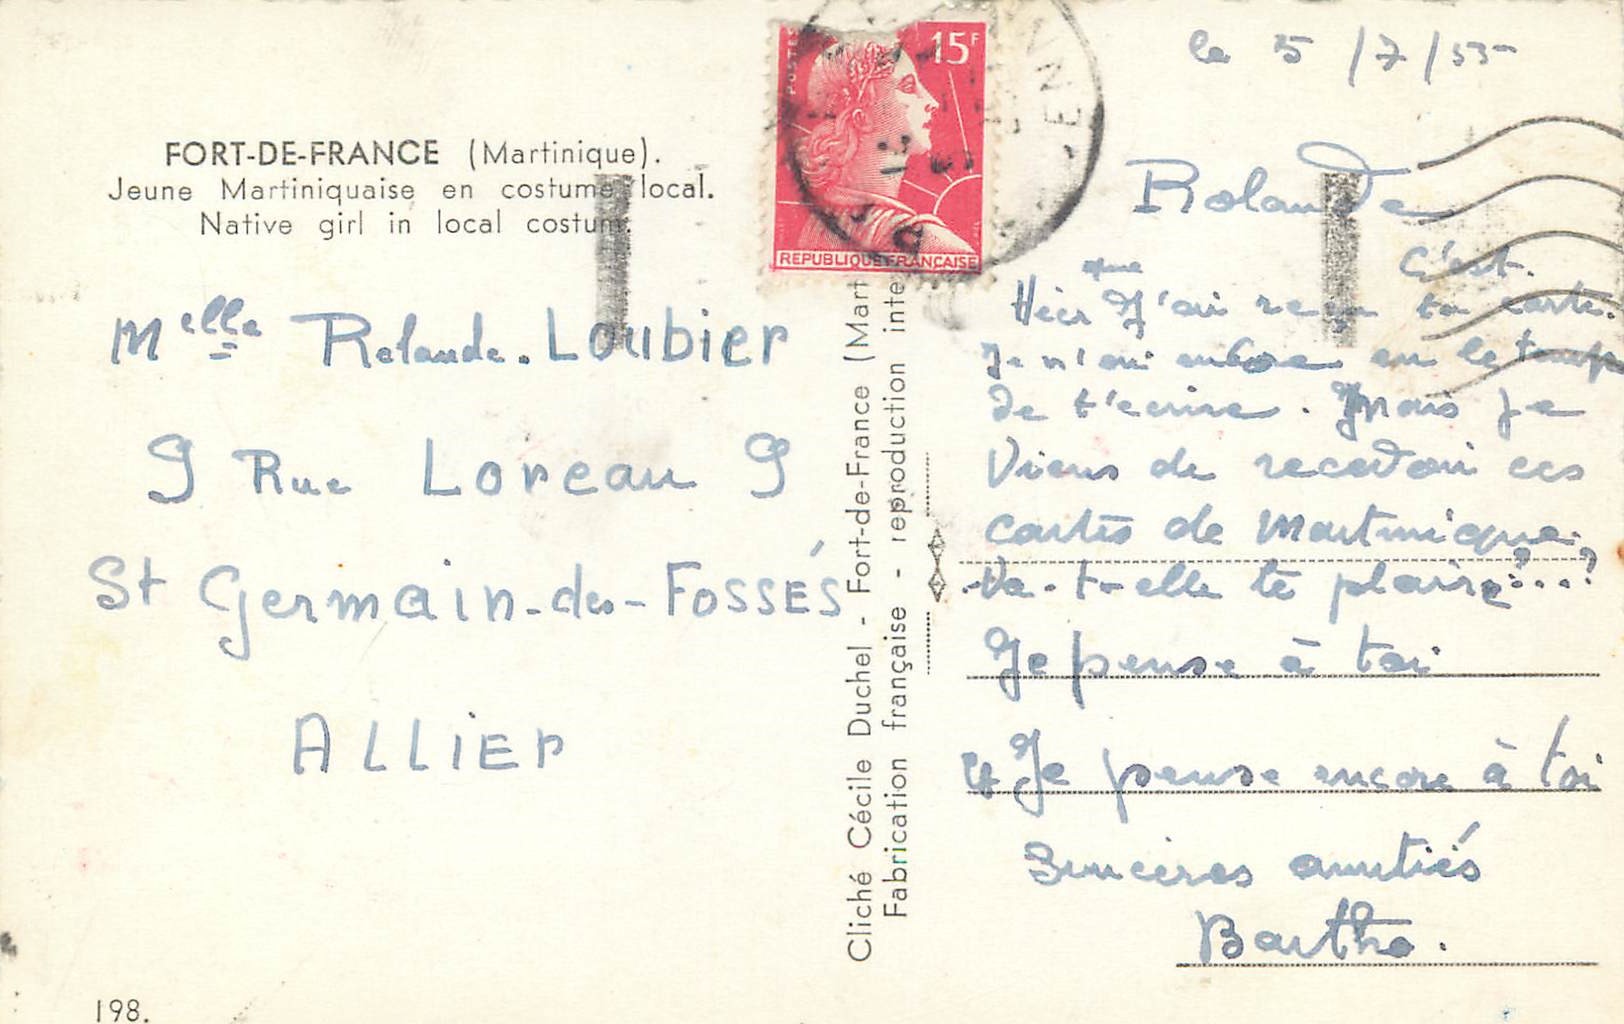 FORT-DE-FRANCE (Martinique).
Jeune Martiniquaise en costume local.
Native girl in local costume.
Melle Rolande. Loubier
9 Rue Loreau 9
St Germain-des-FOSSÉS
ALLIER
198.
POSTES
15F
REPUBLIQUE FRANÇAISE
Cliché Cécile Duchel - Fort-de-France (Mart
Fabrication française - reproduction inte
le 5/7/55
Rolande
C'est
Hier que J'ai reçu ta carte.
Je n'ai encore eu le temps
de t'ecrire. Mais je
Viens de recevoir ces
cartes de Martinique.
Va-t-elle te plaire?...?
Je pense à toi
et Je pense encore à toi
Sincères amitiés
Bartho.